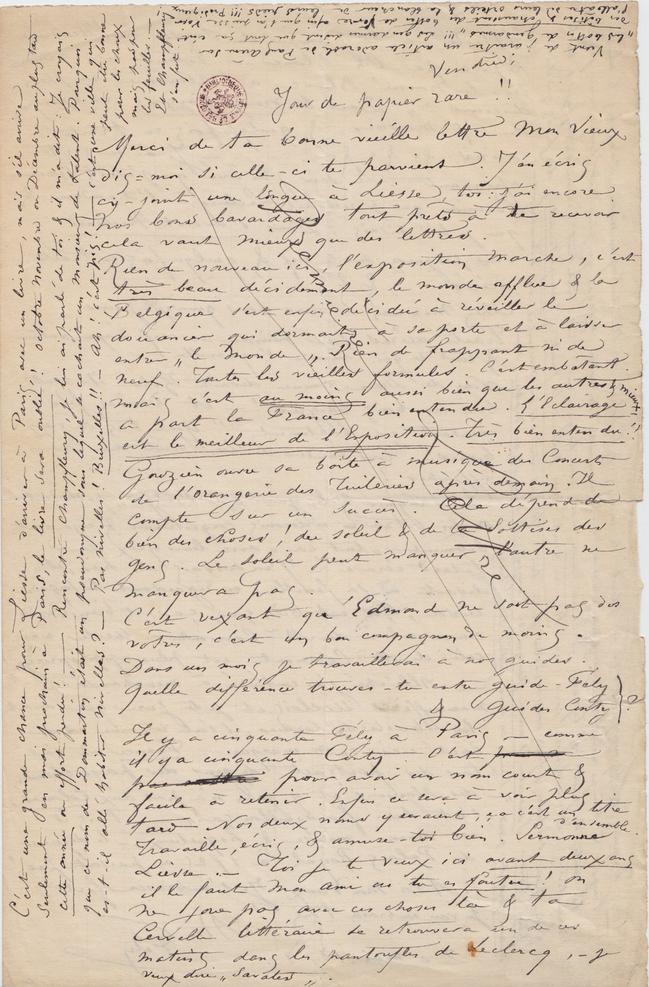 Vendredi
Jour de papier rare !!
Merci de ta bonne vieille lettre mon Vieux
dis-moi si celle-ci te parvient. J'en écris
ci-joint une longue à Liesse,
nos bons bavardages tout prêts à te recevoir
cela vaut mieux que des lettres.
Rien de nouveau ici, l'exposition marche, c'est
très beau décidement, le monde afflue & la
Belgique s'est enfin décidée à réveiller le
douanier qui dormait à sa porte et à laisser
entrer "le monde". Rien de frappant ni de
neuf. Toutes les vieilles formules. C'est embêtant.
mais c'est au moins aussi bien que les autres & mieux !
à part la France bien entendu. L'Eclairage
est le meilleur de l'Exposition. Très bien entendu !!
Gouzien ouvre sa boîte à musique des Concerts
de l'Orangerie des Tuileries après demain. Il
compte sur un succès. Cela dépend de
bien des choses ! du soleil & de la Sottises des
gens. Le soleil peut manquer l'autre ne
manquera pas.
C'est vexant qu'Edmond ne soit pas des
votres, c'est un bon compagnon de moins.
Dans un mois je travaillerai à nos guides.
Quelle différence trouves-tu entre guide-Fély
& Guides Conty ?
Il y a cinquante Fély à Paris – comme
il y a cinquante Conty. C'est
pour avoir un nom court &
facile à retenir. Enfin ce sera à voir plus
tard. Nos deux noms y seraient, ça c'est un titre
d'ensemble.
Travaille, écris, & amuse-toi bien. Sermonne
Lièvre. – Toi je te veux ici avant deux ans
il le faut mon ami ou tu es foutu ! on
ne joue pas avec ces choses là & ta
Cervelle littéraire se retrouvera un de ces
matins dans les pantoufles de Leclercq, – je
veux dire "Savates".
C'est une grande chance pour Liesse d'arriver à Paris avec un livre, mais s'il arrive
Seulement l'an prochain à Paris, le livre sera oublié ! Octobre Novembre ou Décembre au plus tard
cette année ou effort perdu ! — Rencontré Champfleury, je lui ai parlé de toi & il m'a dit : Je croyais
que ce nom de Dommartin était un pseudonyme sous lequel se cachait un Monsieur de talent. Pourquoi
est-il allé habiter Nivelles ? — Pas Nivelles ! Bruxelles !! — Ah ! c'est pis ! c'est une ville qui
peut être bonne
pour les choux
mais pas pour
les feuilles —
Et Champfleury
s'en fut
Vient de paraître un article